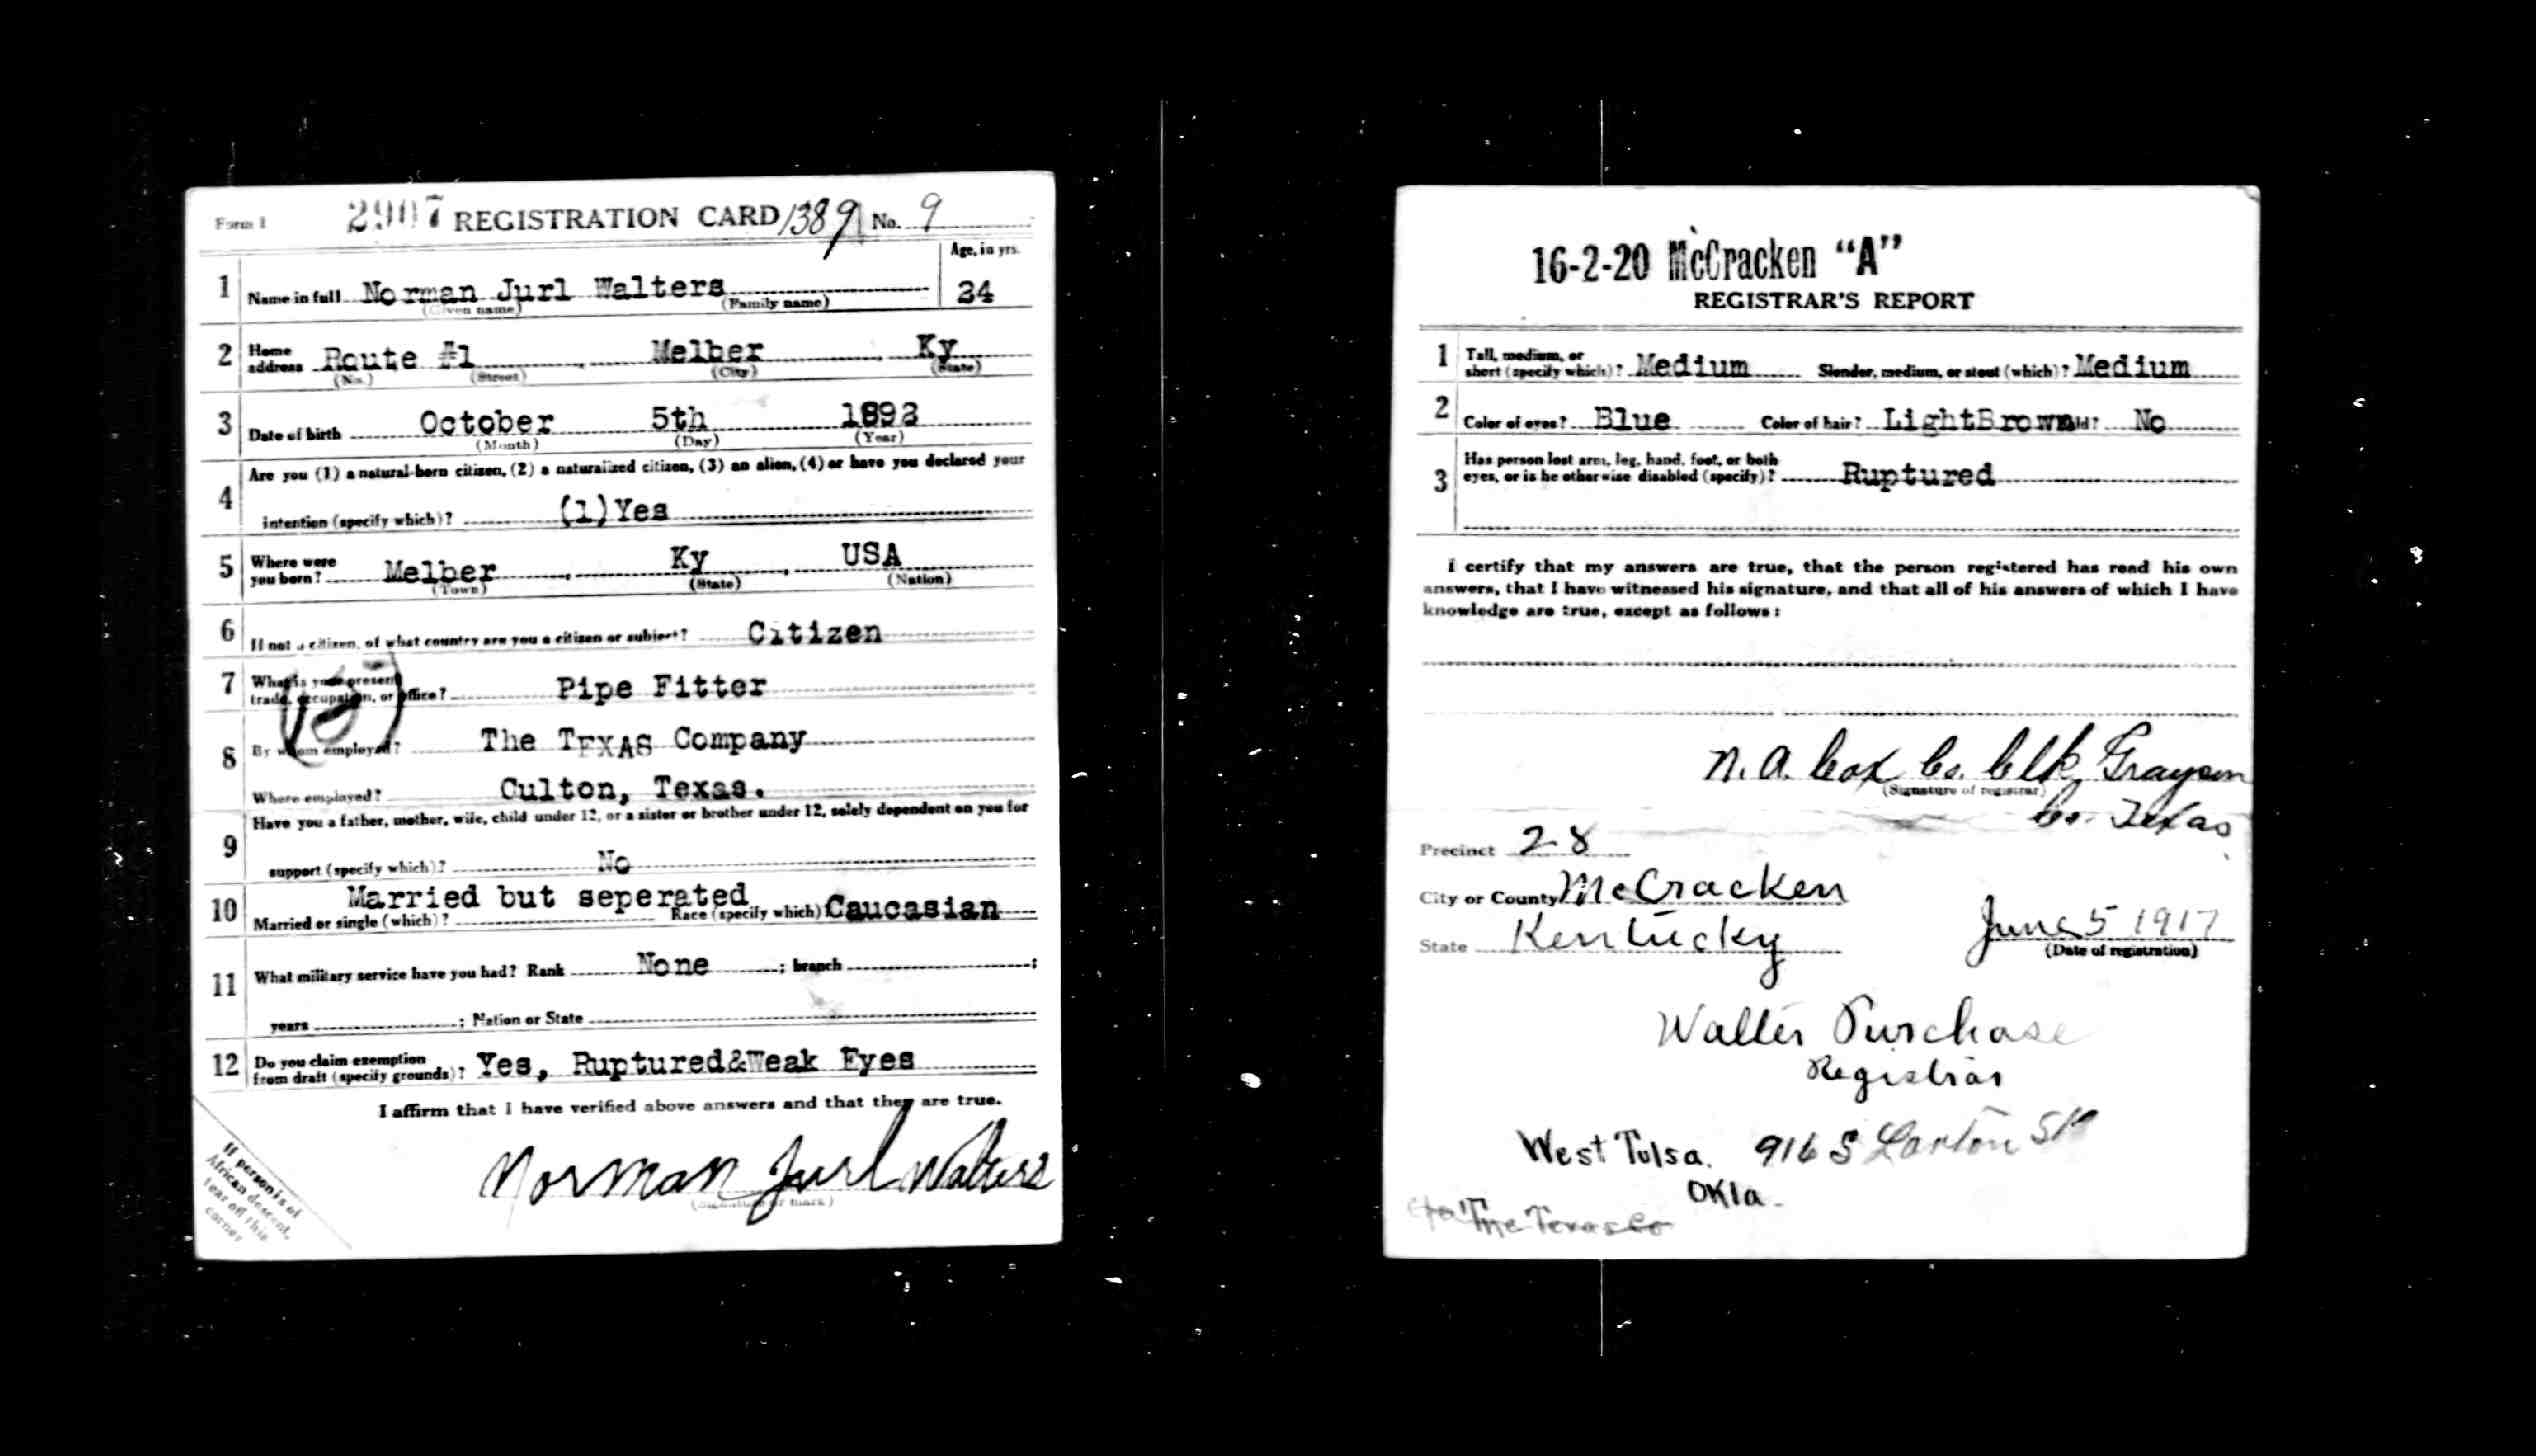 Form 1 2907 REGISTRATION CARD 1389 No. 9
Age, in yrs.
1 Name in full Norman Jurl Walters 24
(Given name) (Family name)
2 Home address Route #1 Melber Ky
(No.) (Street) (City) (State)
3 Date of birth October 5th 1892
(Month) (Day) (Year)
4 Are you (1) a natural-born citizen, (2) a naturalized citizen, (3) an alien, (4) or have you declared your
intention (specify which)? (1) Yes
5 Where were you born? Melber Ky USA
(Town) (State) (Nation)
6 If not a citizen, of what country are you a citizen or subject? Citizen
7 What is your present trade, occupation, or office? Pipe Fitter
8 By whom employed? The TEXAS Company
Where employed? Culton, Texas.
9 Have you a father, mother, wife, child under 12, or a sister or brother under 12, solely dependent on you for
support (specify which)? No
10 Married or single (which)? Married but seperated Race (specify which)? Caucasian
11 What military service have you had? Rank None ; branch ;
years ; Nation or State
12 Do you claim exemption from draft (specify grounds)? Yes, Ruptured&Weak Eyes
I affirm that I have verified above answers and that they are true.
Norman Jurl Walters
(Signature or mark)
If person is of
African descent,
tear off this
corner
16-2-20 McCracken "A"
REGISTRAR'S REPORT
1 Tall, medium, or short (specify which)? Medium Slender, medium, or stout (which)? Medium
2 Color of eyes? Blue Color of hair? LightBrown Bald? No
3 Has person lost arm, leg, hand, foot, or both
eyes, or is he otherwise disabled (specify)? Ruptured
I certify that my answers are true, that the person registered has read his own
answers, that I have witnessed his signature, and that all of his answers of which I have
knowledge are true, except as follows:
N. A. Cox Co. Clk, Grayson
(Signature of registrar)
Co. Texas
Precinct 28
City or County McCracken
State Kentucky June 5 1917
(Date of registration)
Walter Purchase
Registrar
West Tulsa. 916 S
Okla.
The Texas Co